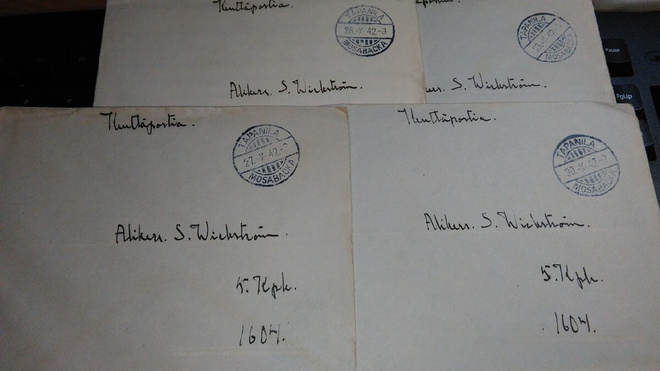 Kenttäpostia.
TAPANILA
26.X.42.-9
MOSABACKA
Alikers. S. Wickström.
Kenttäpostia.
TAPANILA
MOSABACKA
Alikers. S. Wickström.
PgUp
Kenttäpostia.
TAPANILA
27.X.42.-9
MOSABACKA
Alikers. S. Wickström.
5. Kpk.
1604.
Kenttäpostia.
TAPANILA
MOSABACKA
Alikers. S. Wickström.
5. Kpk.
1604.